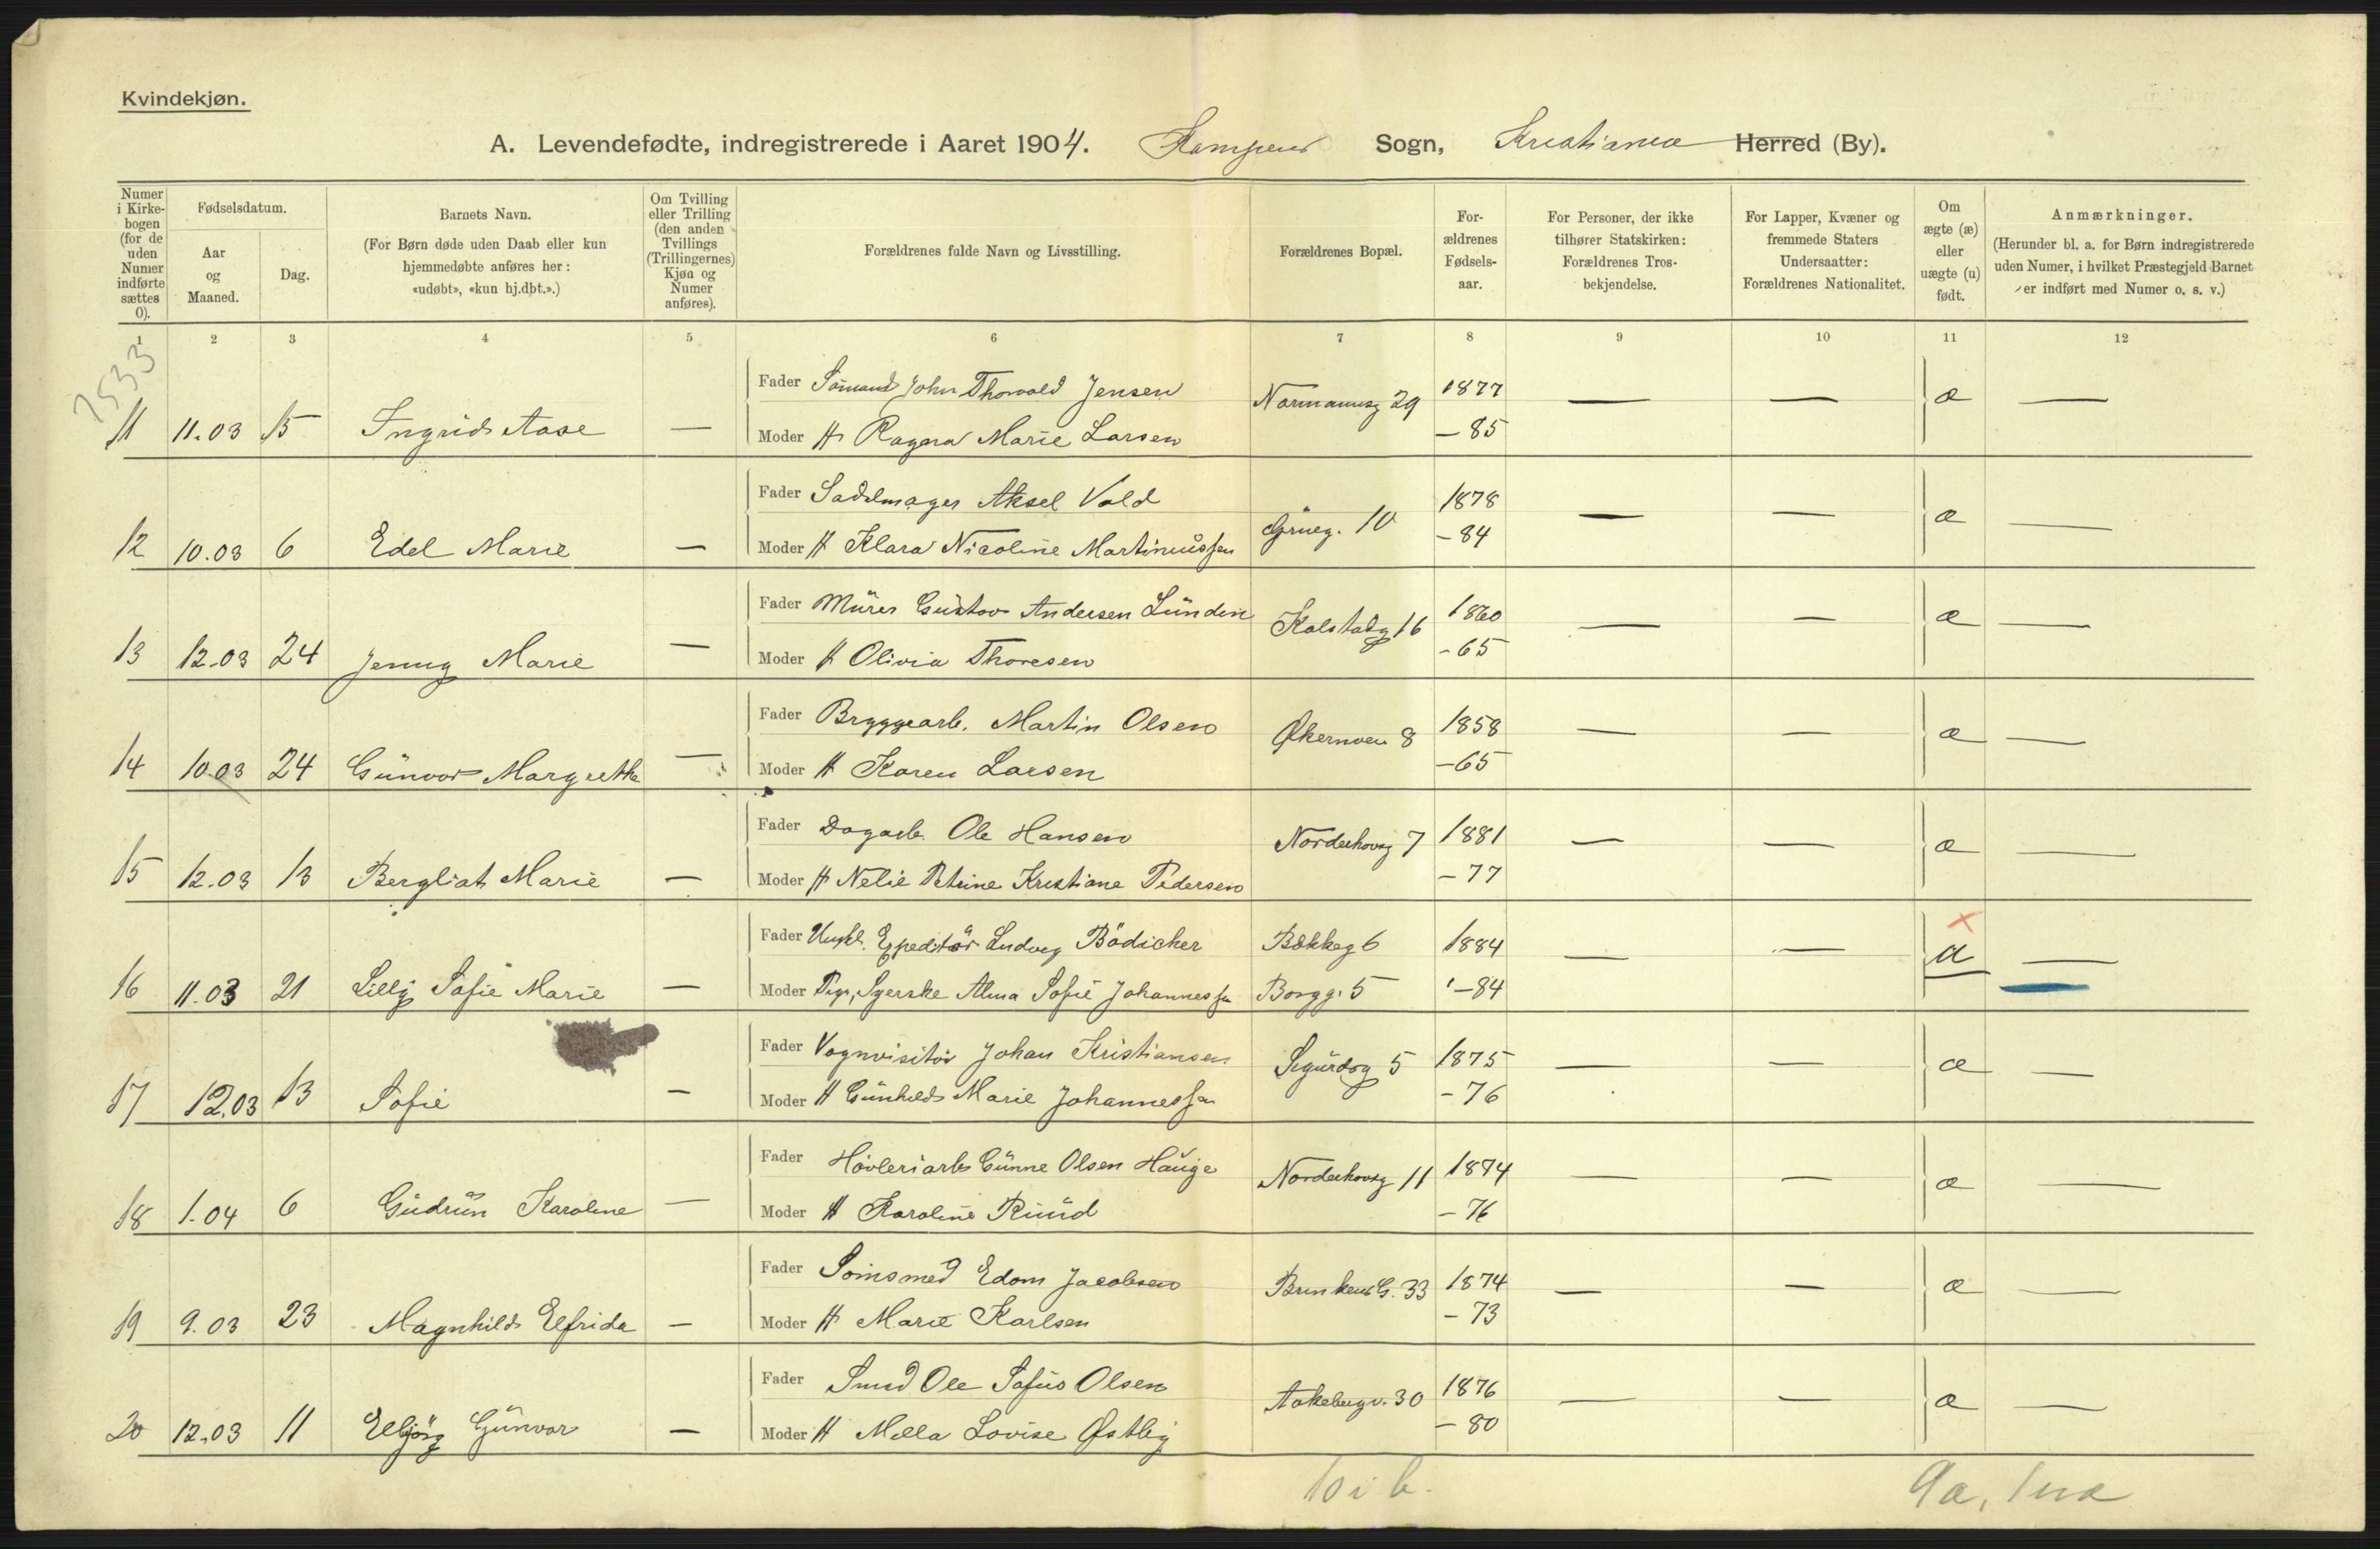 Kvindekjøn.
A. Levendefødte, indregistrerede i Aaret 1904. Kampens Sogn, Kristiania Herred (By).
Numer i Kirkebogen (for de uden Numer indførte sættes 0).
Fødselsdatum.
Aar og Maaned.
Dag.
Barnets Navn.
(For Børn døde uden Daab eller kun hjemmedøbte anføres her: «udøbt», «kun hj.dbt.».)
Om Tvilling eller Trilling (den anden Tvillings (Trillingernes) Kjøn og Numer anføres).
Forældrenes fulde Navn og Livsstilling.
Forældrenes Bopæl.
Forældrenes Fødselsaar.
For Personer, der ikke tilhører Statskirken: Forældrenes Trosbekjendelse.
For Lapper, Kvæner og fremmede Staters Undersaatter: Forældrenes Nationalitet.
Om ægte (æ) eller uægte (u) født.
Anmærkninger.
(Herunder bl. a. for Børn indregistrerede uden Numer, i hvilket Præstegjeld Barnet er indført med Numer o. s. v.)
1 2 3 4 5 6 7 8 9 10 11 12
7533
Fader Sømand John Thorvald Jensen Normannsg 29 1877 — — æ —
11 11.03 15 Ingrid Aase — Moder H Ragna Marie Larsen — 85
Fader Sadelmager Aksel Vold Grüeg. 10 1878 — — æ —
12 10.03 6 Edel Marie — Moder H Klara Nicoline Martinussen — 84
Fader Murer Gustav Andersen Lundin Kalstadg 16 1860 — — æ —
13 12.03 24 Jenny Marie — Moder H Olivia Thoresen - 65
Fader Bryggearb. Martin Olsen Økernvei 8 1858 — — æ —
14 10.03 24 Gunvor Margrethe — Moder H Karen Larsen — 65
Fader Dagarb. Ole Hansen Norderhovsg 7 1881 — — æ —
15 12.03 13 Bergliat Marie — Moder H Nelie Petrine Kristiane Pedersen — 77
Fader Ungkl. Expeditör Ludvig Bödicher Bækkeg 6 1884 — — u —
16 11.03 21 Lilly Sofie Marie — Moder Pige, Syerske Alma Sofie Johannessen Borgg. 5 — 84
Fader Vognvisitör Johan Kristiansen Sigurdsg 5 1875 — — æ —
17 12.03 13 Sofie — Moder H Gunhild Marie Johannessen - 76
Fader Høvleriarb Gunne Olsen Hauge Norderhovsg 11 1874 — — æ —
18 1.04 6 Gudrun Karoline — Moder H Karoline Ruud — 76
Fader Edom Jacobsen Brinkens G. 33 1874 — — æ —
19 9.03 23 Magnhild Elfrida — Moder H Marie Karlsen - 73
Fader Smed Ole Sofus Olsen Aakebergv. 30 1876 — — æ —
20 12.03 11 Elbjörg Gunvor — Moder H Milla Lovise Østby — 80
10 i b.
9æ, 1uæ